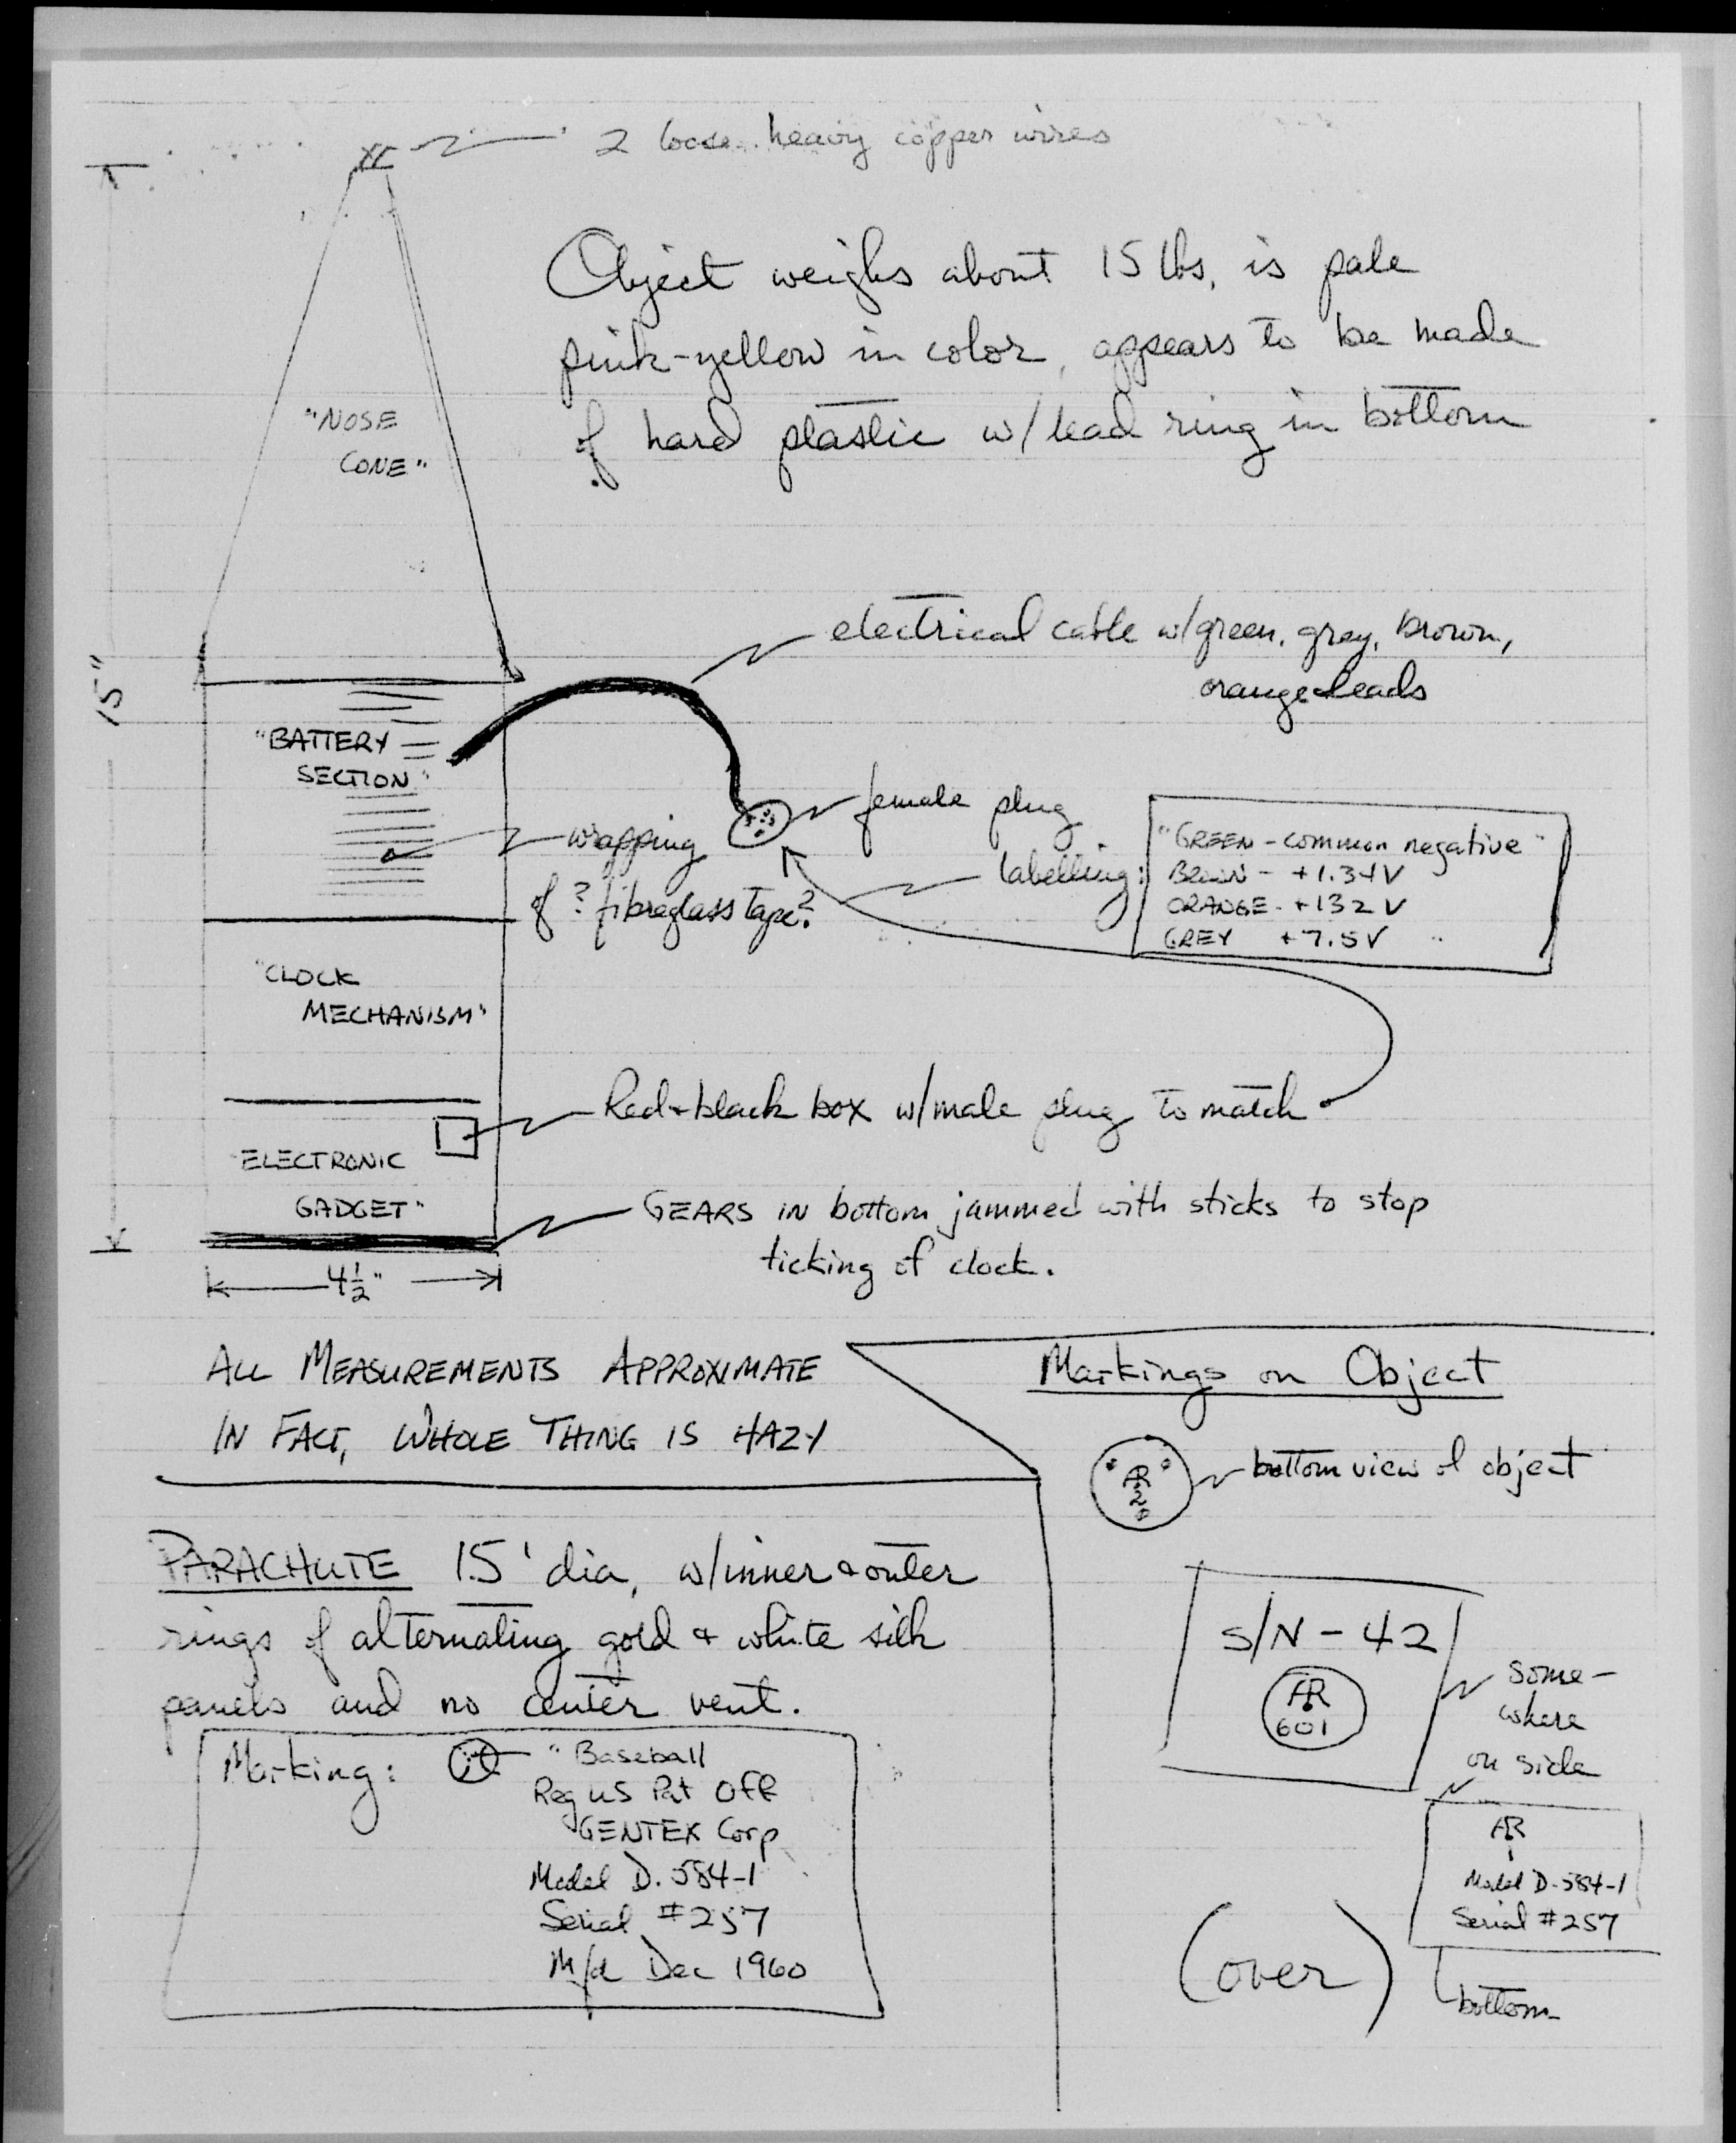 2 loose heavy copper wires
Object weighs about 15 lbs, is pale
pink-yellow in color, appears to be made
of hard plastic w/ lead ring in bottom
"NOSE
CONE"
15"
electrical cable w/green, gray, brown,
orange leads
"BATTERY
SECTION"
female plug
wrapping
of ? fibreglass tape?
labelling:
"GREEN - common negative"
BROWN - +1.34V
ORANGE - +132V
GREY +7.5V
"CLOCK
MECHANISM"
Red + black box w/male plug to match
ELECTRONIC
GADGET"
GEARS IN bottom jammed with sticks to stop
ticking of clock.
4½"
ALL MEASUREMENTS APPROXIMATE
IN FACT, WHOLE THING IS HAZY
Markings on Object
bottom view of object
PARACHUTE 15' dia, w/inner & outer
rings of alternating gold & white silk
panels and no center vent.
Marking:
"Baseball
Reg US Pat Off
GENTEX Corp
Model D. 584-1
Serial #257
Mfd Dec 1960
S/N - 42
AR
601
some-
where
on side
AR
Model D-584-1
Serial #257
bottom
(over)